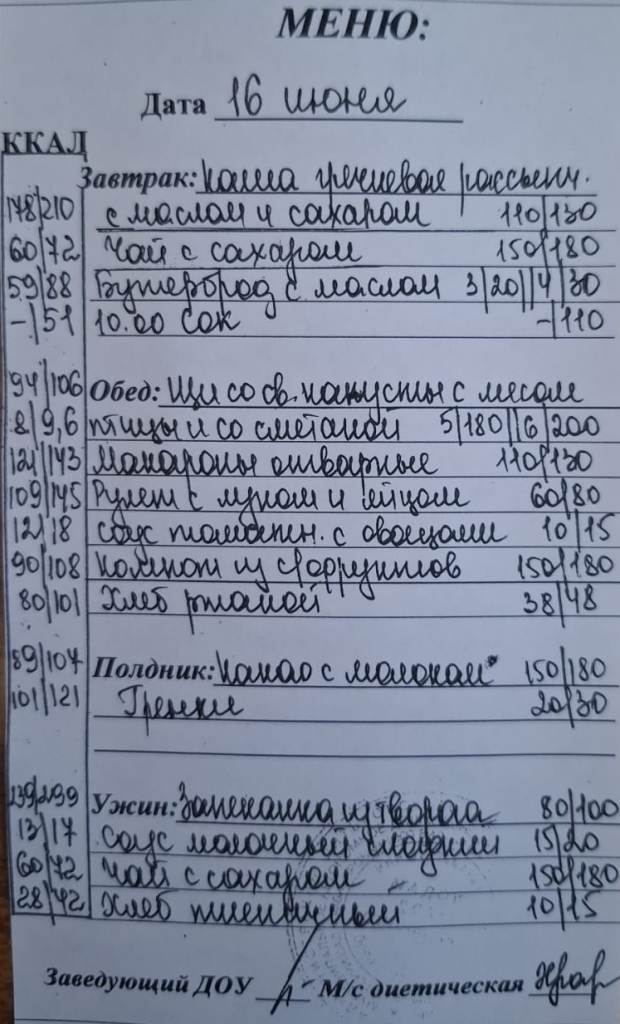 МЕНЮ:
Дата 16 июня
ККАЛ
Завтрак: Каша гречневая рассыпч.
178/210 с маслом и сахаром 110/130
60/72 Чай с сахаром 150/180
59/88 Бутерброд с маслом 3/20//4/30
-/51 10.00 Сок -/110
94/106 Обед: Щи со св. капусты с мясом
8/9,6 птицы и со сметаной 5/180//6/200
121/143 Макароны отварные 110/130
109/145 Рулет с луком и яйцом 60/80
12/18 Соус томатн. с овощами 10/15
90/108 Компот из с/фруктов 150/180
80/101 Хлеб ржаной 38/48
89/107 Полдник: Какао с молоком 150/180
101/121 Гренки 20/30
239/299 Ужин: Запеканка из творога 80/100
13/17 Соус молочный сладкий 15/20
60/72 Чай с сахаром 150/180
28/42 Хлеб пшеничный 10/15
Заведующий ДОУ М/с диетическая